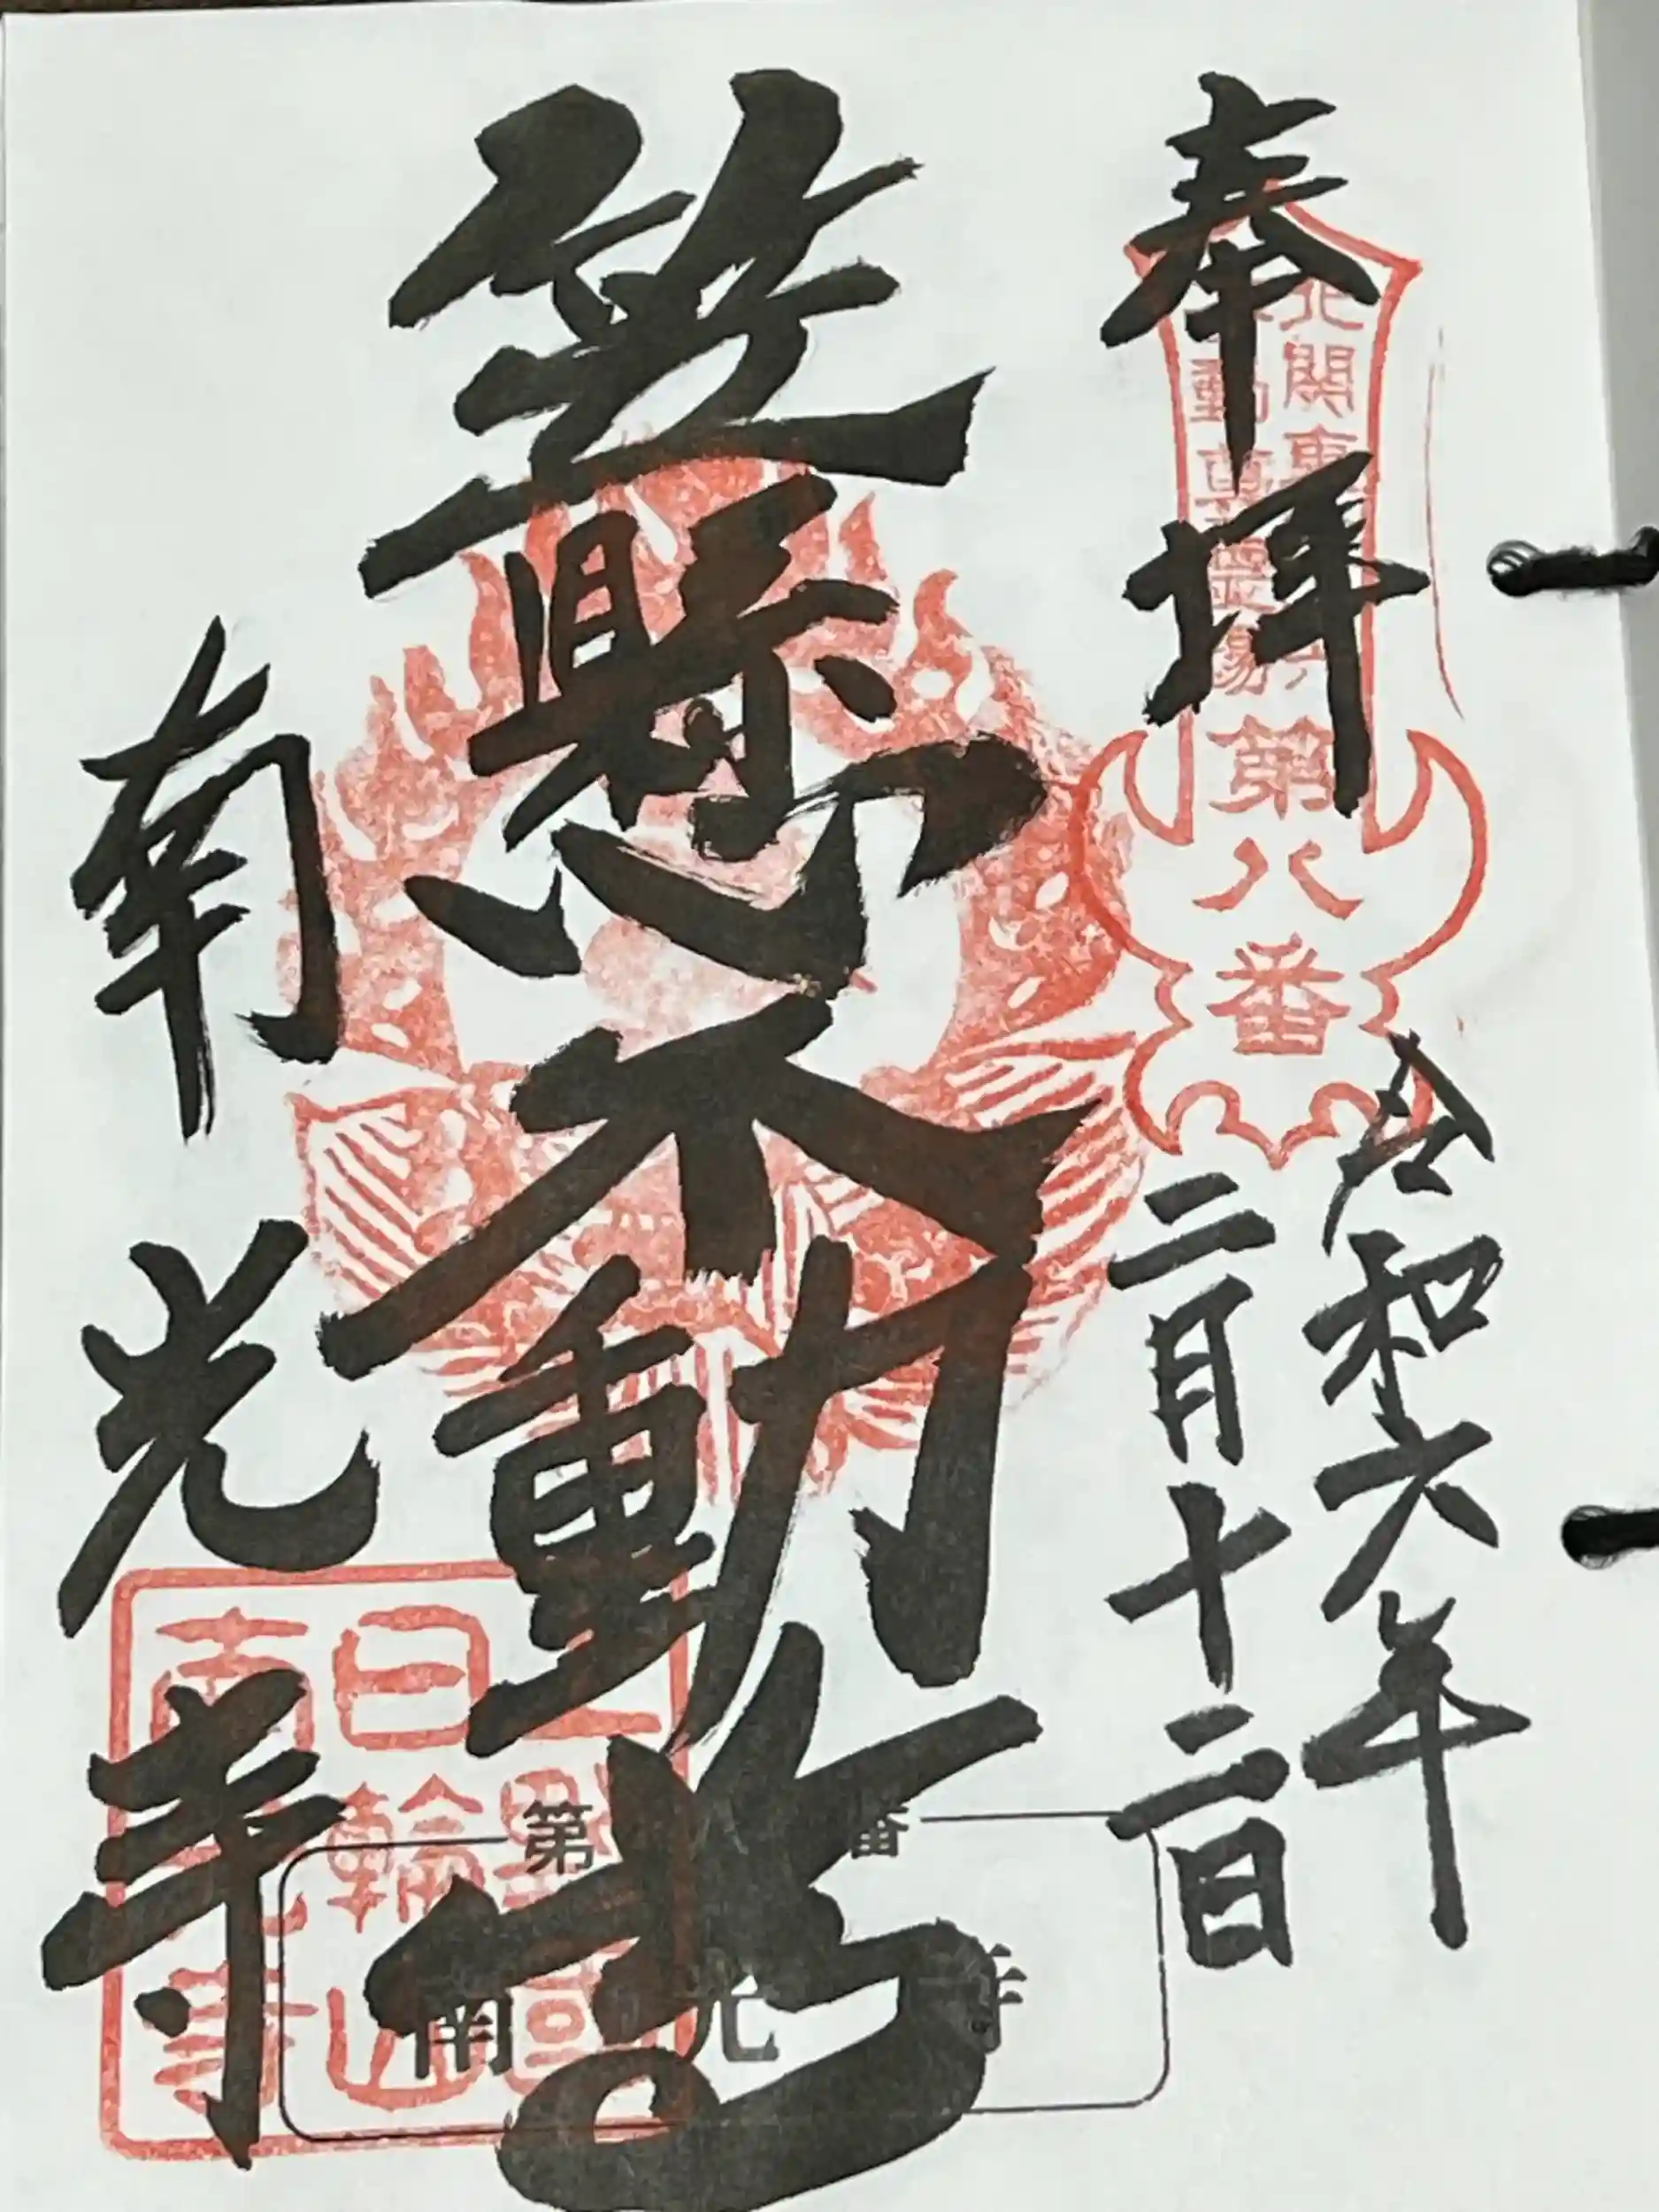 奉拝
北関東
動尊霊場
第八番
令和六年
二月十二日
笠懸不動尊
南光寺
日輪山
南 寺
第 番
南光寺